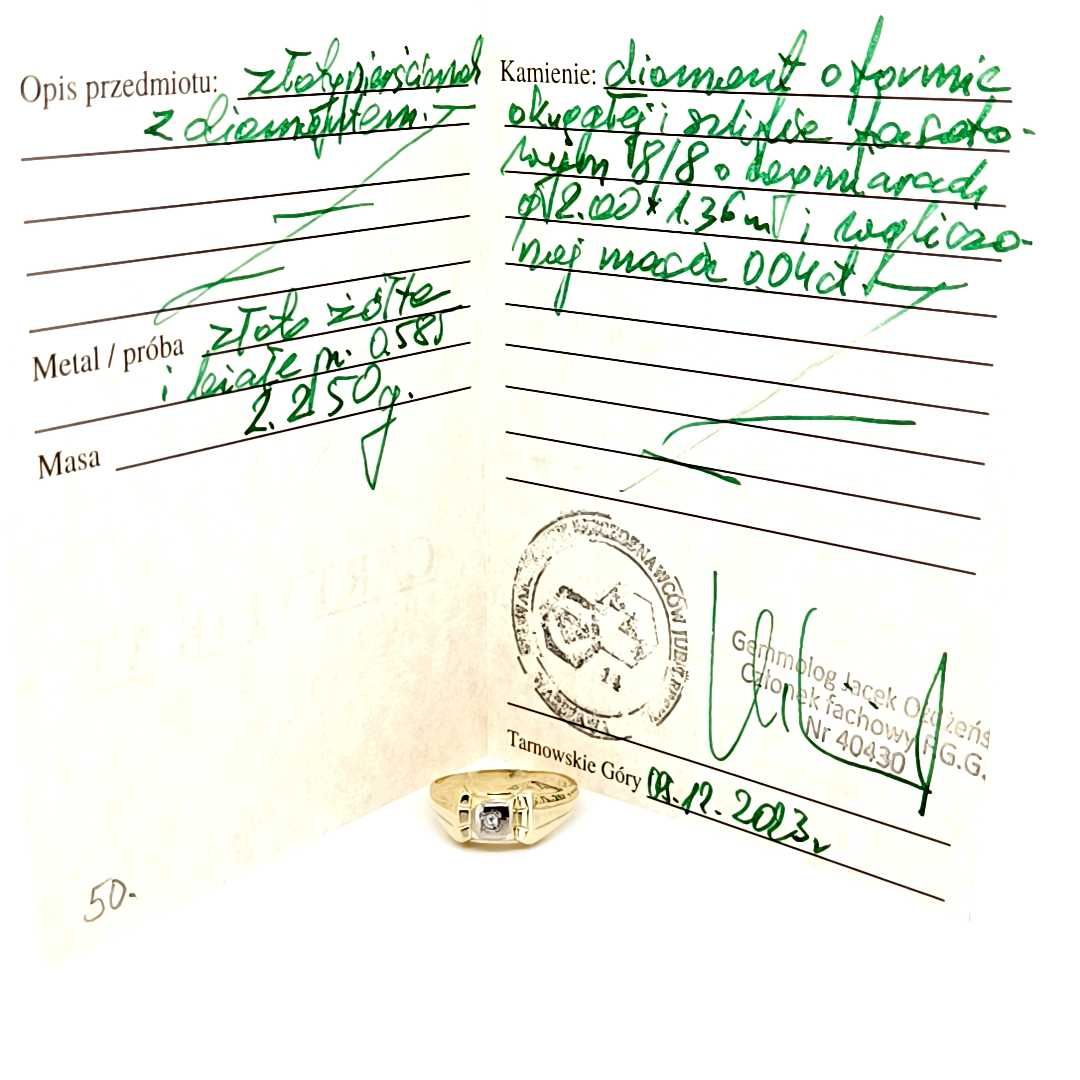 Opis przedmiotu: złoty pierścionek
z diamentem.
Metal / próba złoto żółte
i białe pr. 0.585
2.250g.
Masa
50.-
Kamienie: diament o formie
okrągłej i szlifie faseto-
wym 8/8 o wymiarach
2.00 * 1.36m i wyliczo-
nej masie 0.04ct
14
Gemmolog Jacek
Członek fachowy P.G.G.
Nr 40430
Tarnowskie Góry 12.2023r